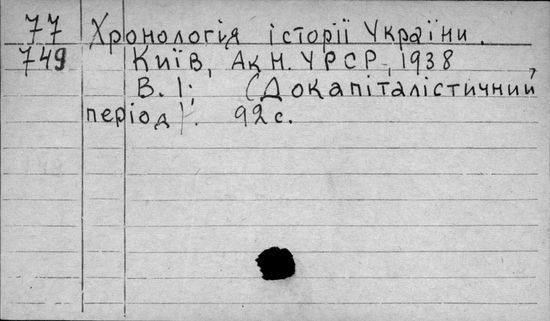 77 Хронологія історії України.
749 Київ, Ак Н. УРСР, 1938
В. I; (Докапіталістичний,
період). 92 с.